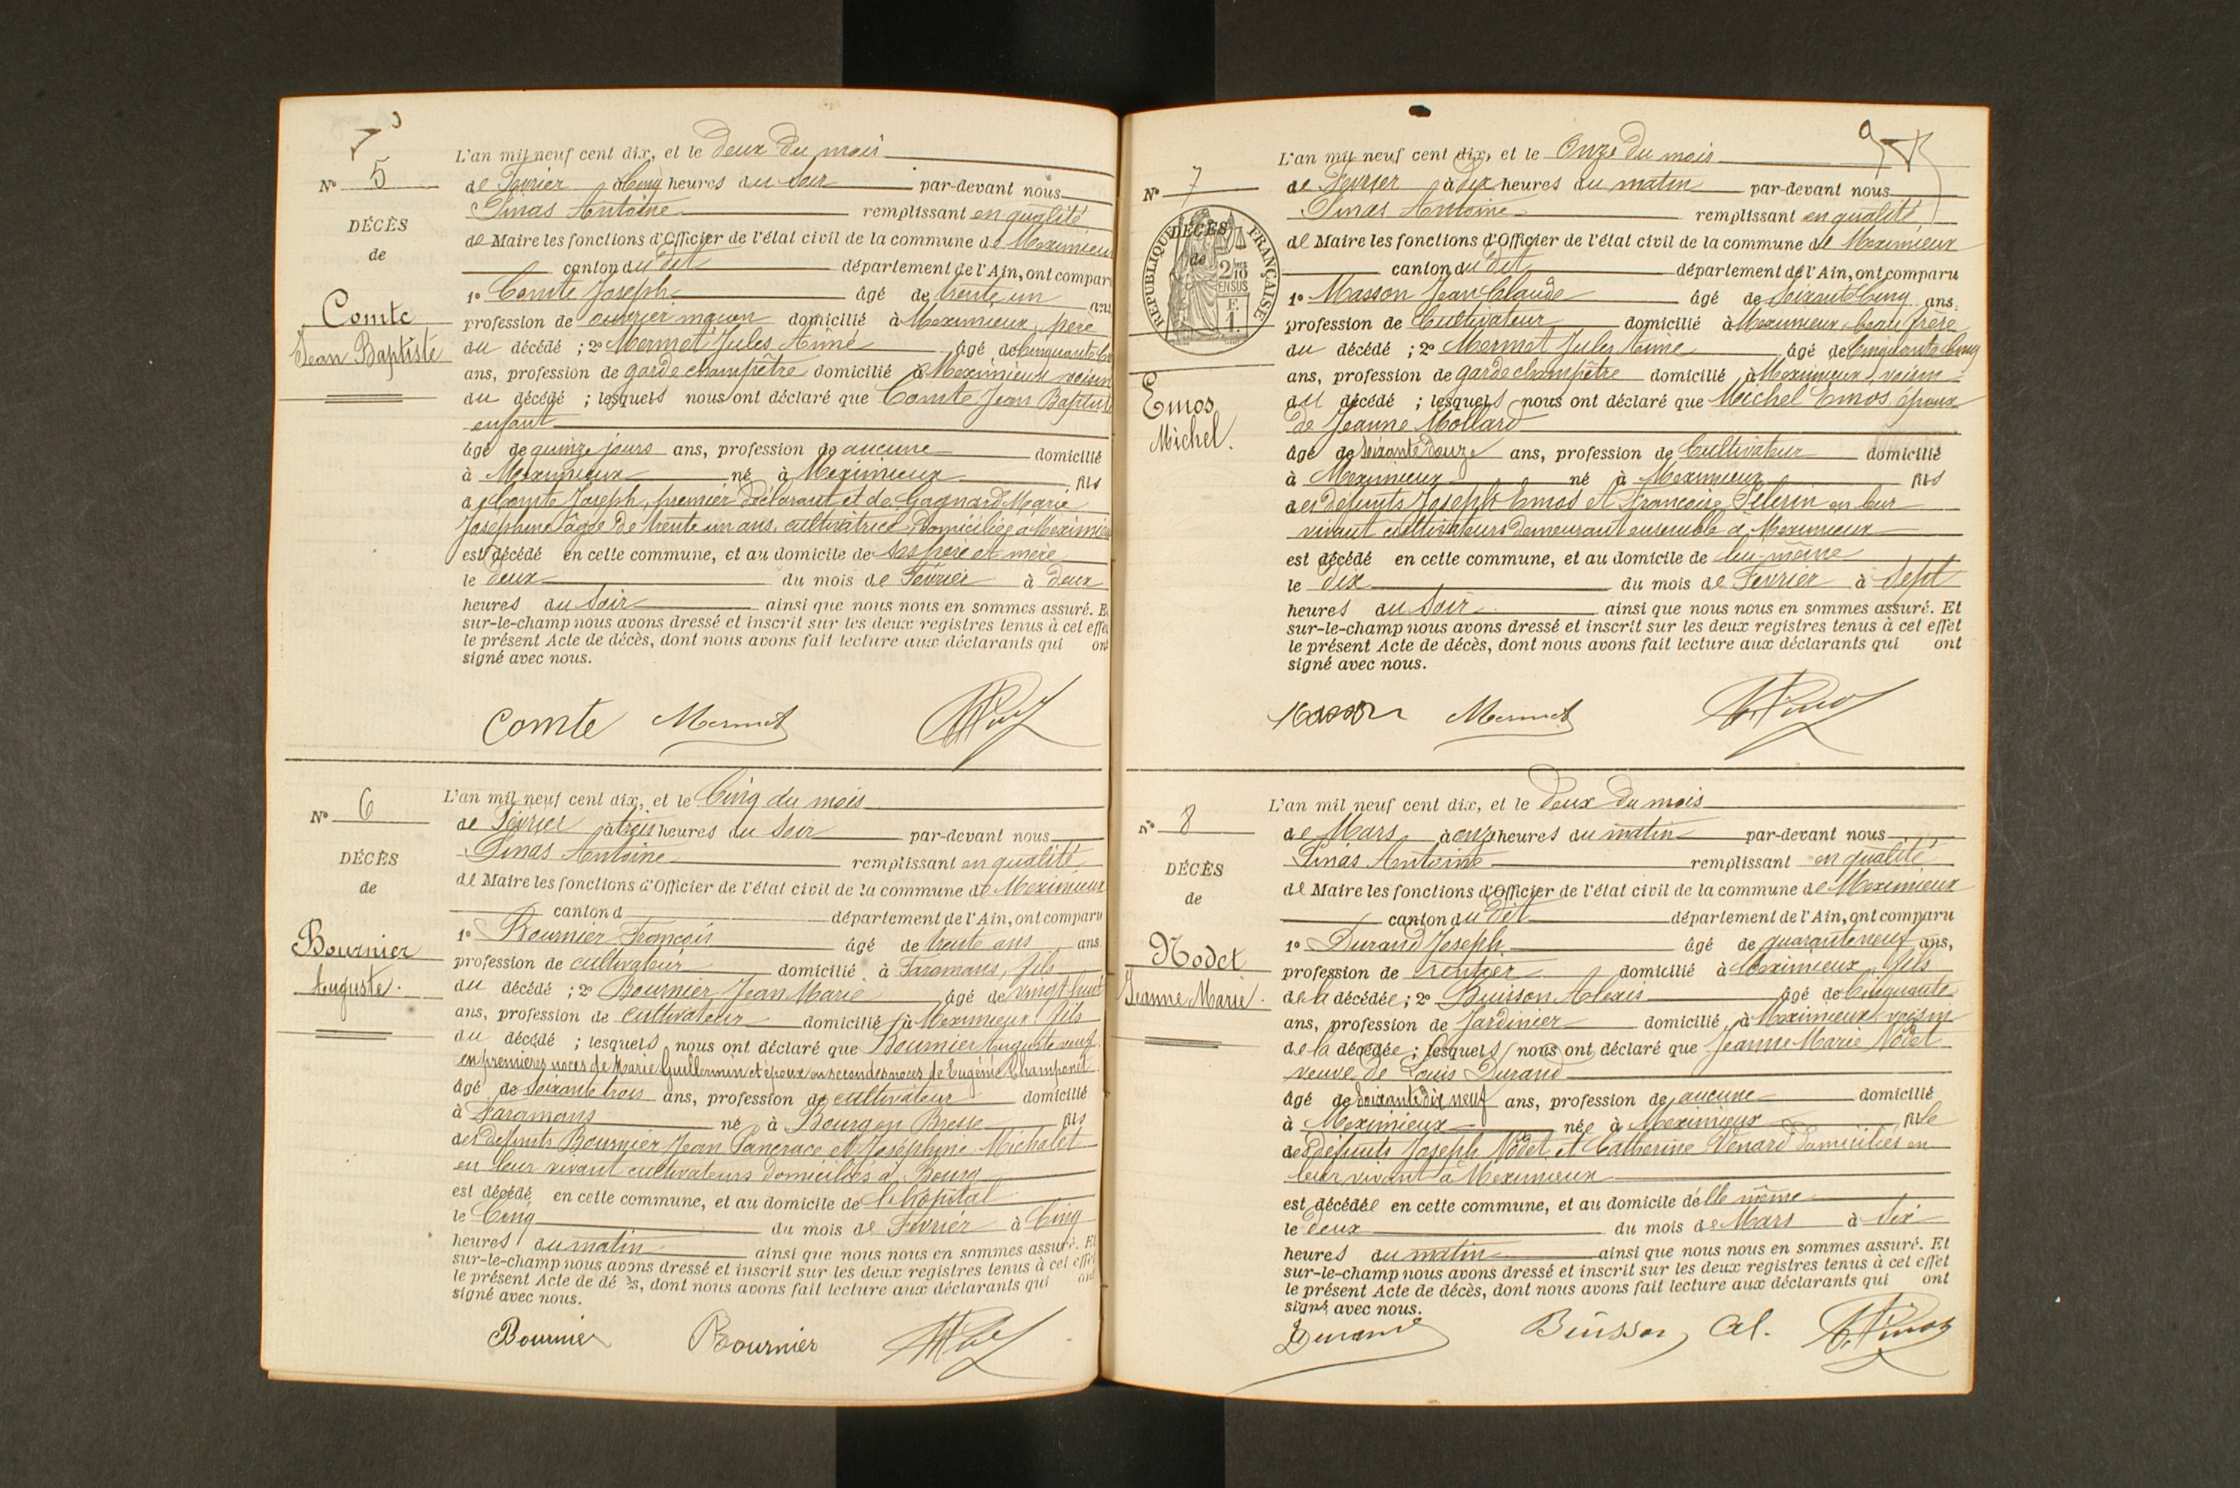 N° 5
DÉCÈS
de
Comte
Jean Baptiste
L'an mil neuf cent dix, et le deux du mois
de Février à cinq heures du soir par-devant nous
Pinas Antoine remplissant en qualité
de Maire les fonctions d'Officier de l'état civil de la commune de Meximieux
canton du dit département de l'Ain, ont comparu
1° Comte Joseph âgé de trente un ans
profession de ouvrier maçon domicilié à Meximieux, père
du décédé ; 2° Mermet Jules Aimé âgé de Cinquante
ans, profession de garde champêtre domicilié à Meximieux voisin
du décédé ; lesquels nous ont déclaré que Comte Jean Baptiste
enfant
âgé de quinze jours ans, profession de aucune domicilié
à Meximieux né à Meximieux fils
de Comte Joseph, premier déclarant et de Gagnard Marie
Joséphine âgée de trente un ans, cultivatrice, domiciliée à Meximieux
est décédé en cette commune, et au domicile de ses père et mère
le deux du mois de Février à deux
heures du soir ainsi que nous nous en sommes assuré. Et
sur-le-champ nous avons dressé et inscrit sur les deux registres tenus à cet effet
le présent Acte de décès, dont nous avons fait lecture aux déclarants qui ont
signé avec nous.
Comte Mermet
N° 6
DÉCÈS
de
Bournier
Auguste.
L'an mil neuf cent dix, et le Cinq du mois
de Février à trois heures du soir par-devant nous
Pinas Antoine remplissant en qualité
de Maire les fonctions d'Officier de l'état civil de la commune de Meximieux
canton d département de l'Ain, ont comparu
1° Bournier François âgé de trente ans ans
profession de cultivateur domicilié à Faramans, fils
du décédé ; 2° Bournier Jean Marie âgé de vingt huit
ans, profession de cultivateur domicilié à Meximieux fils
du décédé ; lesquels nous ont déclaré que Bournier Auguste veuf
en premières noces de Marie Guillermin et époux en secondes noces de Eugénie Champonet
âgé de soixante trois ans, profession de cultivateur domicilié
à Faramans né à Bourg en Bresse fils
des défunts Bournier Jean Pancrace et Joséphine Michalet
en leur vivant cultivateurs domiciliés à Bourg
est décédé en cette commune, et au domicile de l'hôpital
le Cinq du mois de Février à Cinq
heures du matin ainsi que nous nous en sommes assuré. Et
sur-le-champ nous avons dressé et inscrit sur les deux registres tenus à cet effet
le présent Acte de décès, dont nous avons fait lecture aux déclarants qui ont
signé avec nous.
Bournier Bournier
N° 7
DÉCÈS
de
RÉPUBLIQUE FRANÇAISE
2/10
EN SUS
F.
1.
Emos
Michel.
L'an mil neuf cent dix, et le Onze du mois
de Février à dix heures du matin par-devant nous
Pinas Antoine remplissant en qualité
de Maire les fonctions d'Officier de l'état civil de la commune de Meximieux
canton du dit département de l'Ain, ont comparu
1° Masson Jean Claude âgé de soixante cinq ans,
profession de Cultivateur domicilié à Meximieux beau frère
du décédé ; 2° Mermet Jules Aimé âgé de Cinquante cinq
ans, profession de garde champêtre domicilié à Meximieux, voisin
du décédé ; lesquels nous ont déclaré que Michel Emos époux
de Jeanne Mollard
âgé de soixante douze ans, profession de Cultivateur domicilié
à Meximieux né à Meximieux fils
des défunts Joseph Emos et Françoise Pélerin en leur
vivant cultivateurs demeurant ensemble à Meximieux
est décédé en cette commune, et au domicile de lui-même
le dix du mois de Février à sept
heures du soir ainsi que nous nous en sommes assuré. Et
sur-le-champ nous avons dressé et inscrit sur les deux registres tenus à cet effet
le présent Acte de décès, dont nous avons fait lecture aux déclarants qui ont
signé avec nous.
Masson Mermet A. Pinas
N° 8
DÉCÈS
de
Nodet
Jeanne Marie.
L'an mil neuf cent dix, et le deux du mois
de Mars à onze heures du matin par-devant nous
Pinas Antoine remplissant en qualité
de Maire les fonctions d'Officier de l'état civil de la commune de Meximieux
canton du dit département de l'Ain, ont comparu
1° Durand Joseph âgé de quarante neuf ans,
profession de rentier domicilié à Meximieux, fils
de la décédée ; 2° Buisson Alexis âgé de Cinquante
ans, profession de Jardinier domicilié à Meximieux voisin
de la décédée ; lesquels nous ont déclaré que Jeanne Marie Nodet
veuve de Louis Durand
âgé de soixante dix neuf ans, profession de aucune domicilié
à Meximieux née à Meximieux fille
des défunts Joseph Nodet et Catherine Venard domiciliés en
leur vivant à Meximieux
est décédée en cette commune, et au domicile d'elle même
le deux du mois de Mars à six
heures du matin ainsi que nous nous en sommes assuré. Et
sur-le-champ nous avons dressé et inscrit sur les deux registres tenus à cet effet
le présent Acte de décès, dont nous avons fait lecture aux déclarants qui ont
signé avec nous.
Durand Buisson Al. A. Pinas